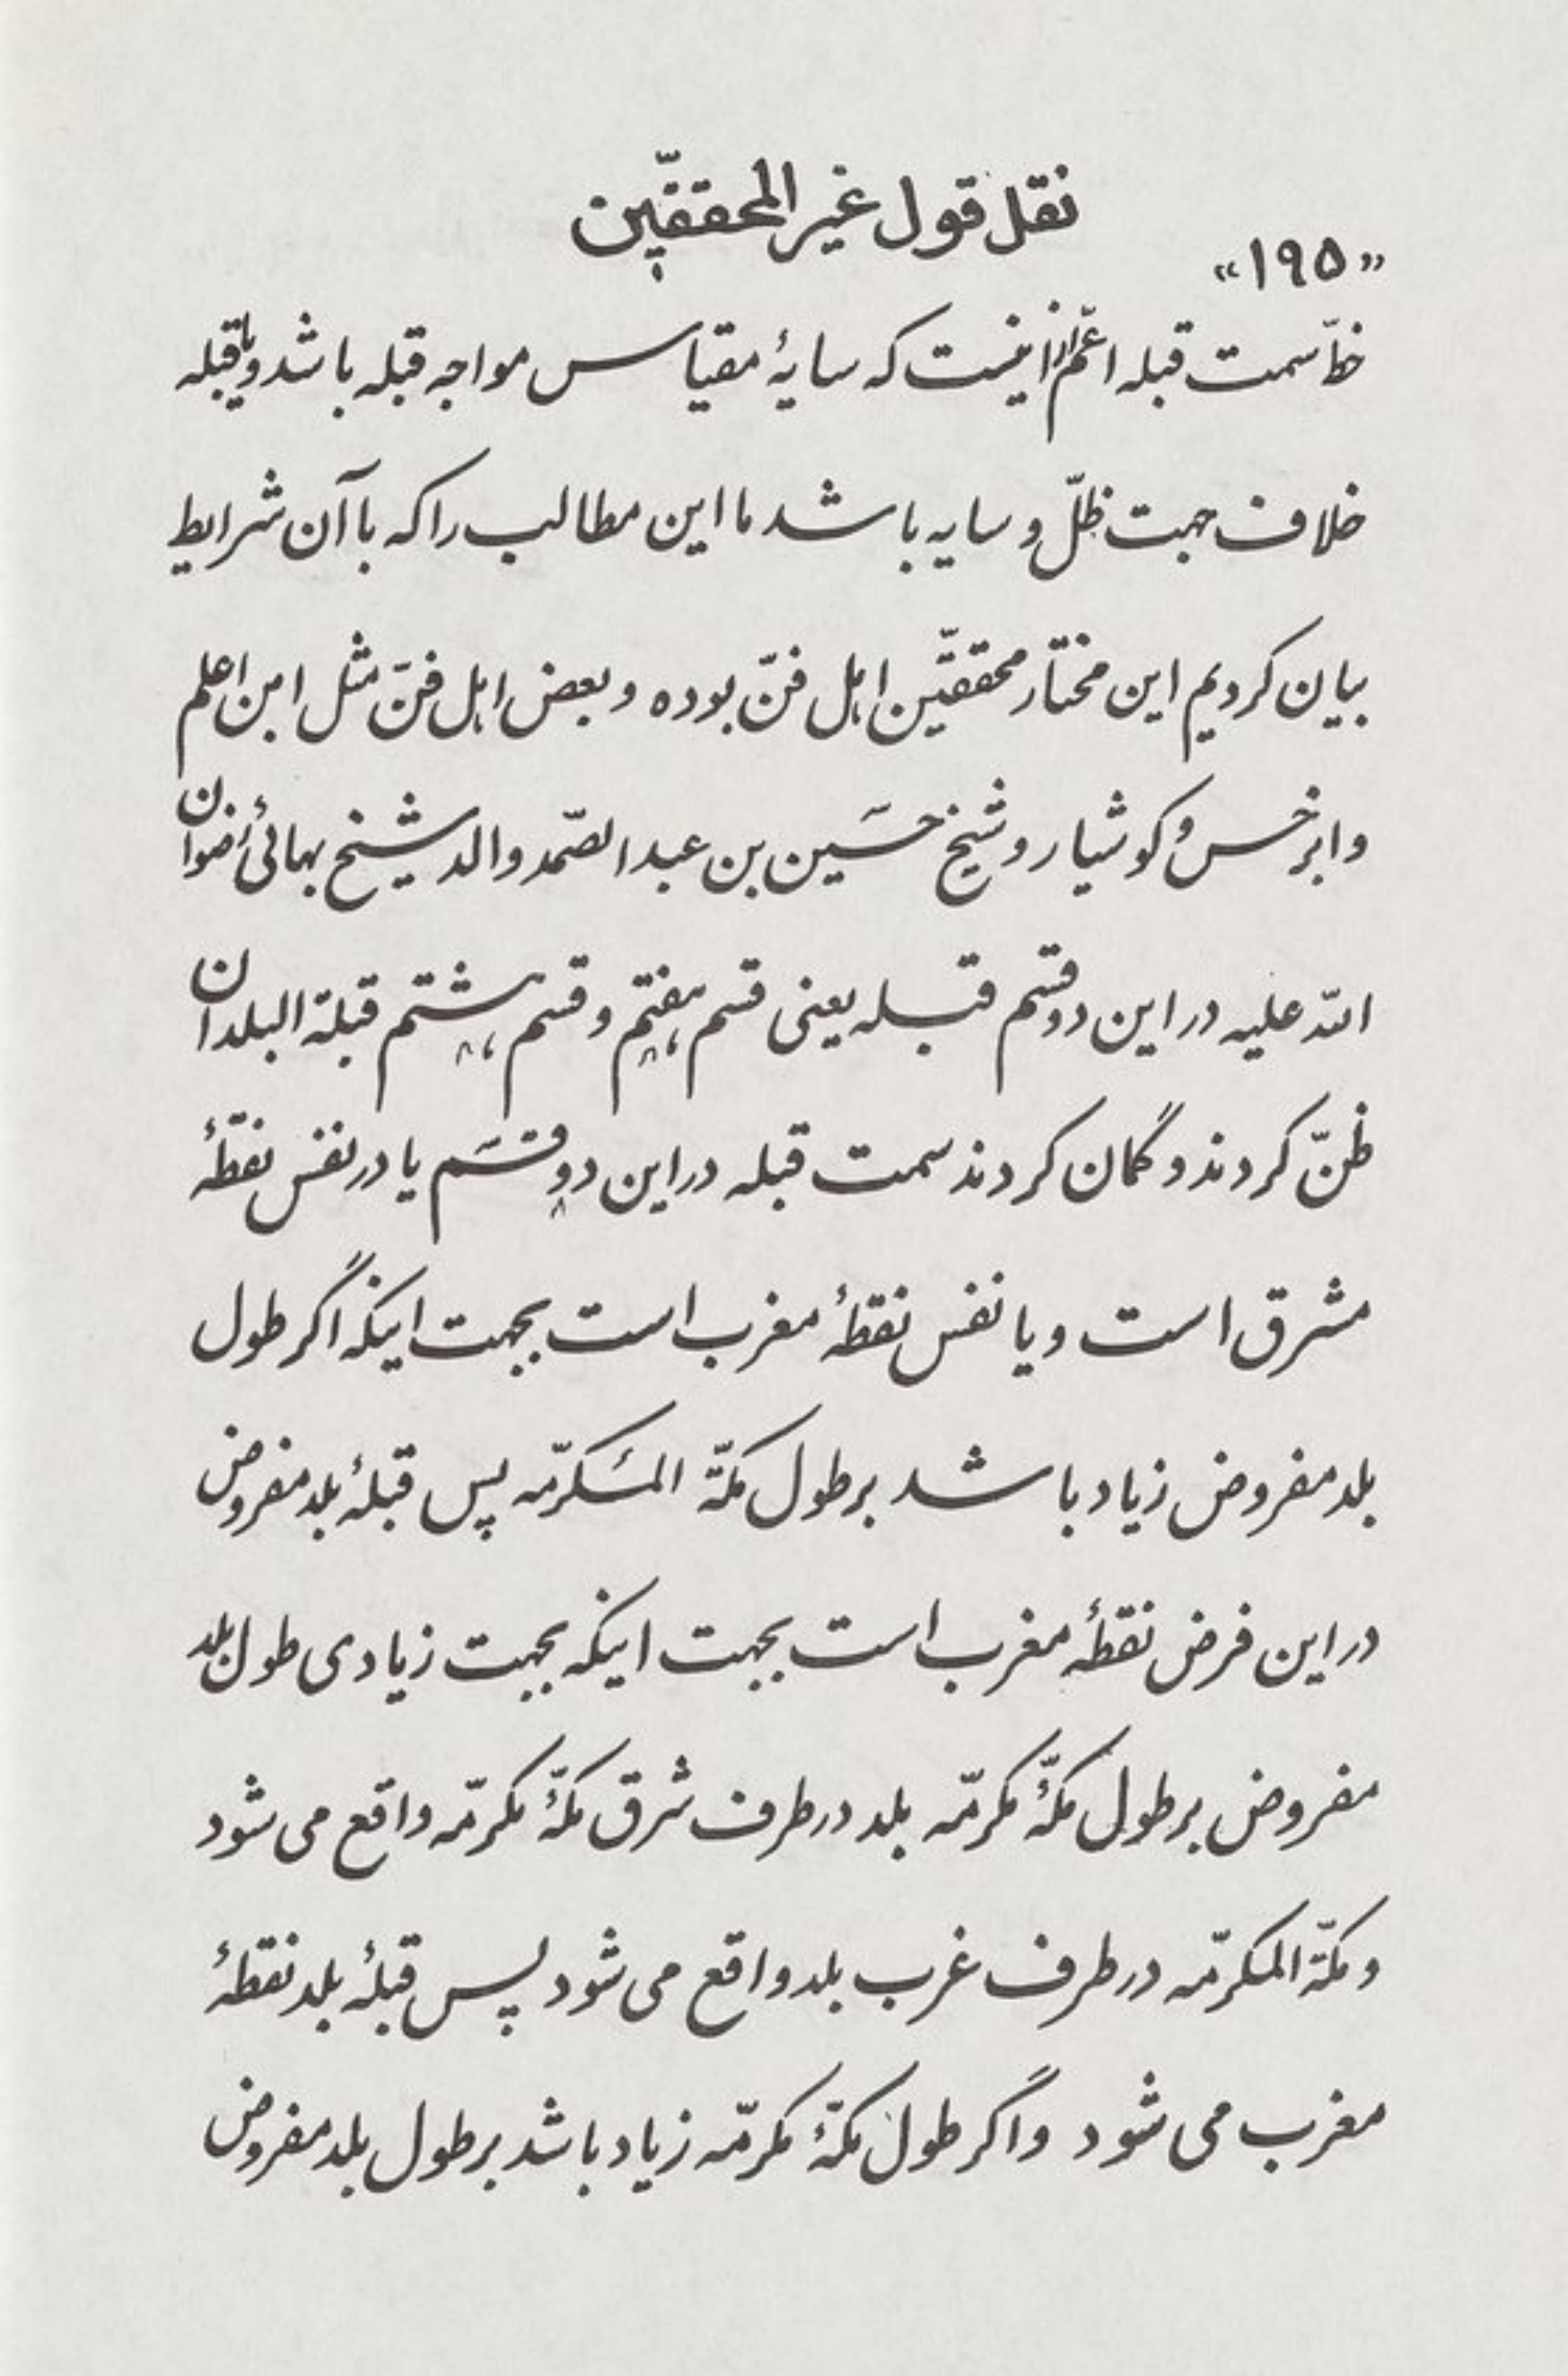 نقل قول غیر المحققّین
«۱۹۵»
خطّ سمت قبله اعمّ از اینست که سایۀ مقیاس مواجه قبله باشد و یا قبله
خلاف جهت ظلّ و سایه باشد ما این مطالب را که با آن شرایط
بیان کردیم این مختار محققّین اهل فنّ بوده و بعض اهل فنّ مثل ابن اعلم
و ابرخس و کوشیار و شیخ حسَین بن عبد الصّمد والد شیخ بهائی رضوان
اللّه علیه در این دو قسم قبله یعنی قسم هفتم و قسم هشتم قبلة البلدان
ظنّ کردند و گمان کردند سمت قبله در این دو قسَم یا در نفس نقطۀ
مشرق است و یا نفس نقطۀ مغرب است بجهت اینکه اگر طول
بلد مفروض زیاد باشد بر طول مکّة المَکرّمه پس قبلۀ بلد مفروض
در این فرض نقطۀ مغرب است بجهت اینکه بجهت زیادی طول بلد
مفروض بر طول مکّۀ مکرمّه بلد در طرف شرق مکّۀ مکرمّه واقع می شود
و مکّة المکرمّه در طرف غرب بلد واقع می شود پس قبلۀ بلد نقطۀ
مغرب می شود و اگر طول مکّۀ مکرمّه زیاد باشد بر طول بلد مفروض